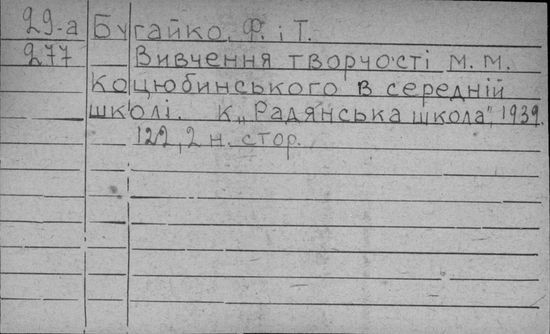 29-а Бугайко, Ф. і Т.
277 Вивчення творчості М. М.
Коцюбинського в середній
школі. К. „Радянська школа", 1939.
122, 2 н. стор.